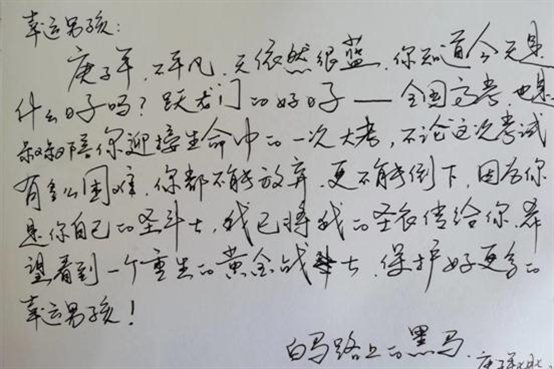 幸运男孩：
庚子年，不平凡，天依然很蓝，你知道今天是
什么日子吗？跃龙门的好日子——全国高考，也是
叔叔陪你迎接生命中的一次大考，不论这次考试
有多么困难，你都不能放弃，更不能倒下，因为你
是你自己的圣斗士，我已将我的圣衣借给你，希
望看到一个重生的黄金战斗士，保护好更多的
幸运男孩！
白马路上的黑马